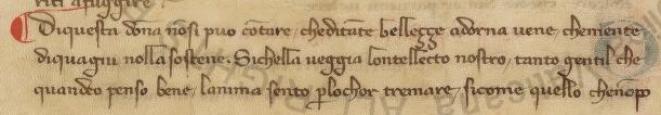 riti afuggire
Di questa dona nosi puo cōtare, che ditāte bellezze adorna uene, cheniente
diquagiu nolla sostene. Sichella ueggia lontellecto nostro, tanto gentil che
quandeo penso bene, lanima sento plochor tremare, sicome quello chenōpo